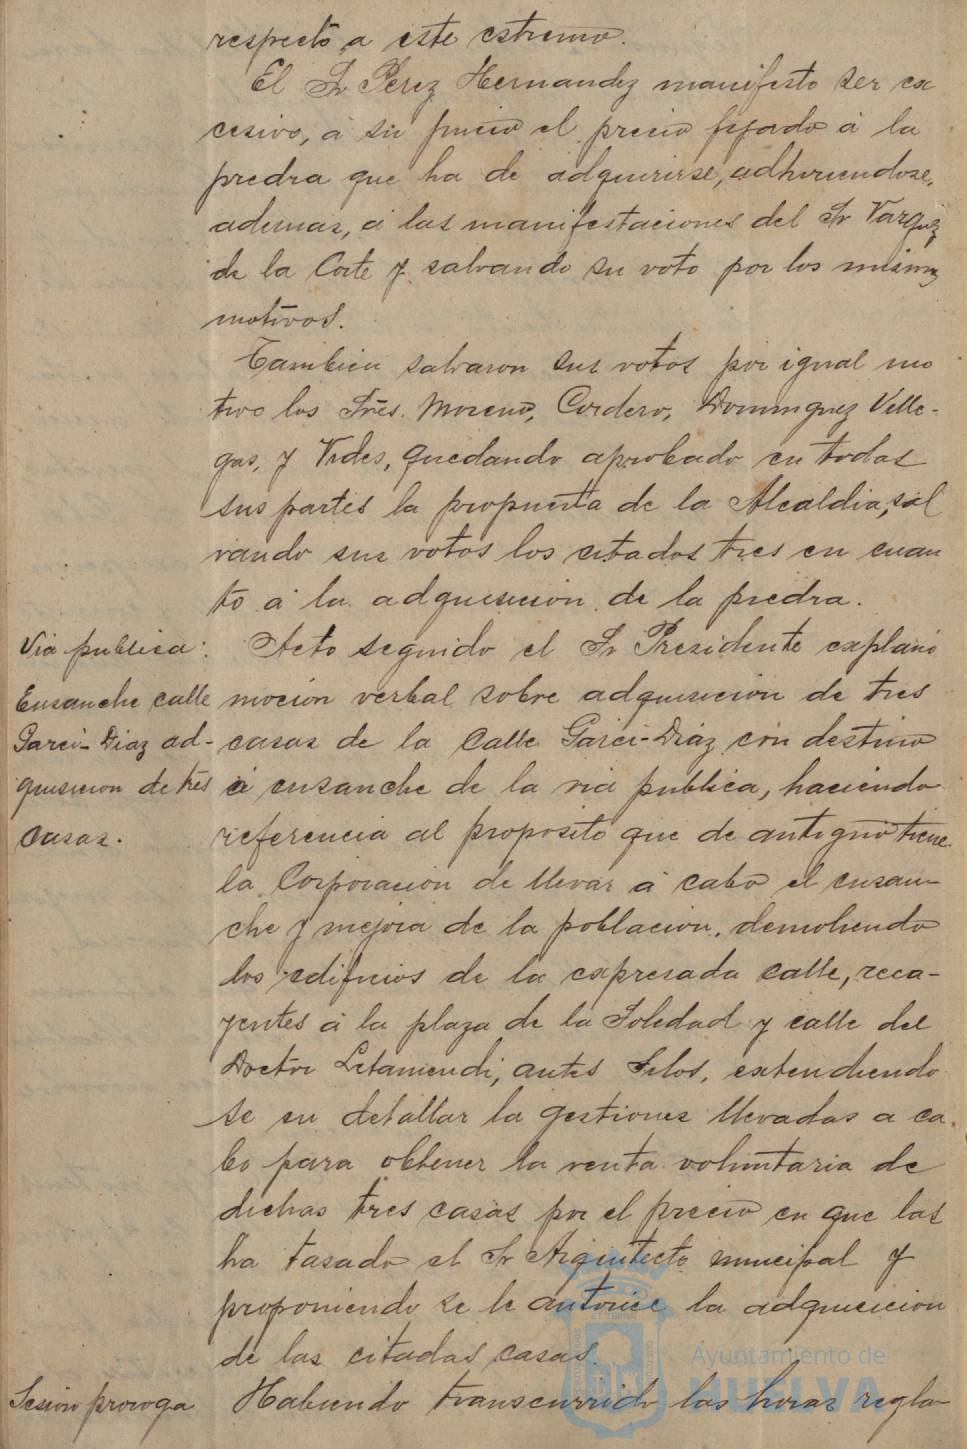 respecto a este estremo.
El Sr Perez Hernandez manifesto ser ex
cesivo, á su juicio el precio fijado á la
piedra que ha de adquirirse, adhiriendose,
ademas, á las manifestaciones del Sr Vazquez
de la Corte y salvando su voto por los mismos
motivos.
Tambien salvaron sus votos por igual mo
tivo los Sres. Moreno, Cordero, Dominguez Ville-
gas, y Vides, quedando aprobado en todas
sus partes la propuesta de la Alcaldia, sal
vando sus votos los citados tres en cuan
to á la adquisicion de la piedra.
Via publica:
Ensanche calle
Garci-Diaz ad-
quisicion de tres
casas.
Acto seguido el Sr Presidente esplanó
mocion verbal sobre adquisicion de tres
casas de la calle Garci-Diaz con destino
á ensanche de la via publica, haciendo
referencia al proposito que de antiguo tiene
la Corporacion de llevar á cabo el ensan-
che y mejora de la poblacion, demoliendo
los edificios de la expresada calle, reca-
yentes á la plaza de la Soledad y calle del
Doctor Letamendi, antes Silos, extendiendo
se en detallar la gestiones llevadas a ca
bo para obtener la venta voluntaria de
dichas tres casas por el precio en que las
ha tasado el Sr Arquitecto municipal y
proponiendo se le autorice la adquisicion
de las citadas casas.
Sesion proroga
Habiendo transcurrido las horas regla-
Ayuntamiento de
HUELVA